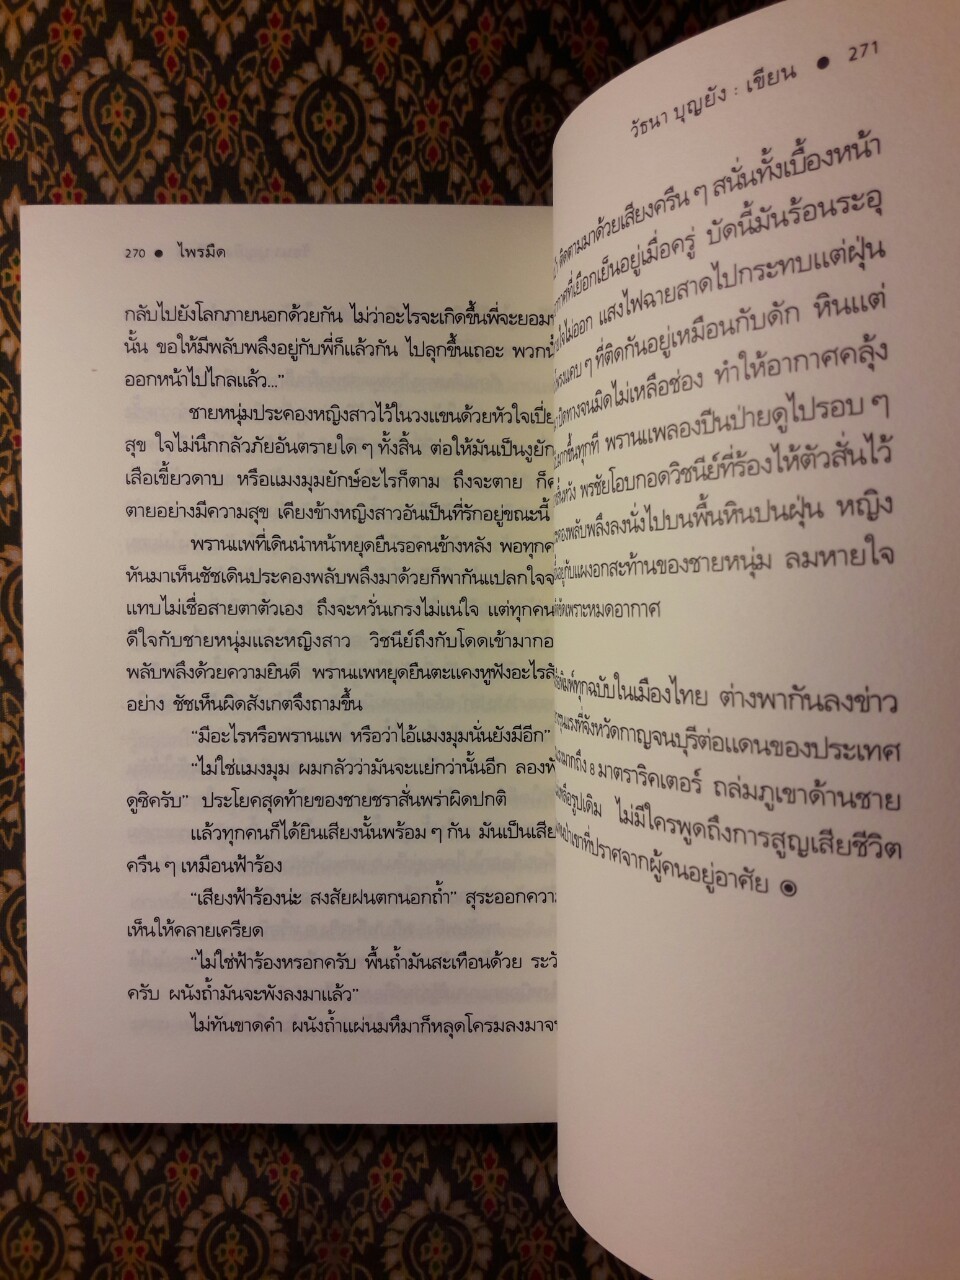 270 ● ไพรมืด
กลับไปยังโลกภายนอกด้วยกัน ไม่ว่าอะไรจะเกิดขึ้นพี่จะยอม
นั้น ขอให้มีพลับพลึงอยู่กับพี่ก็แล้วกัน ไปลุกขึ้นเถอะ
ออกหน้าไปไกลแล้ว..."
ชายหนุ่มประคองหญิงสาวไว้ในวงแขนด้วยหัวใจ
สุข ใจไม่นึกกลัวภัยอันตรายใด ๆ ทั้งสิ้น ต่อให้มันเป็น
เสือเขี้ยวดาบ หรือแมงมุมยักษ์อะไรก็ตาม ถึงจะตาย
ตายอย่างมีความสุข เคียงข้างหญิงสาวอันเป็นที่รักอยู่ขณะนี้
พรานแพที่เดินนำหน้าหยุดยืนรอคนข้างหลัง พอทุก
หันมาเห็นชัชเดินประคองพลับพลึงมาด้วยก็พากันแปลกใจ
แทบไม่เชื่อสายตาตัวเอง ถึงจะหวั่นเกรงไม่แน่ใจ แต่ทุกคน
ดีใจกับชายหนุ่มและหญิงสาว วิชนีย์ถึงกับโดดเข้ามา
พลับพลึงด้วยความยินดี พรานแพหยุดยืนตะแคงหูฟังอะไร
อย่าง ชัชเห็นผิดสังเกตจึงถามขึ้น
"มีอะไรหรือพรานแพ หรือว่าไอ้แมงมุมนั่นยังมีอีก"
"ไม่ใช่แมงมุม ผมกลัวว่ามันจะแย่กว่านั้นอีก ลอง
ดูซิครับ" ประโยคสุดท้ายของชายชราสั่นพร่าผิดปกติ
แล้วทุกคนก็ได้ยินเสียงนั้นพร้อม ๆ กัน มันเป็น
ครืน ๆ เหมือนฟ้าร้อง
"เสียงฟ้าร้องน่ะ สงสัยฝนตกนอกถ้ำ" สุระออก
เห็นให้คลายเครียด
"ไม่ใช่ฟ้าร้องหรอกครับ พื้นถ้ำมันสะเทือนด้วย
ครับ ผนังถ้ำมันจะพังลงมาแล้ว"
ไม่ทันขาดคำ ผนังถ้ำแผ่นมหึมาก็หลุดโครมลงมา
วัธนา บุญยัง : เขียน ● 271
ติดตามมาด้วยเสียงครืน ๆ สนั่นทั้งเบื้องหน้า
ที่เยือกเย็นอยู่เมื่อครู่ บัดนี้มันร้อนระอุ
ไม่ออก แสงไฟฉายสาดไปกระทบแต่ฝุ่น
แคบ ๆ ที่ติดกันอยู่เหมือนกับดัก หินแต่
ปิดทางจนมิดไม่เหลือช่อง ทำให้อากาศคลุ้ง
มากขึ้นทุกที พรานแพลองปีนป่ายดูไปรอบ ๆ
พรชัยโอบกอดวิชนีย์ที่ร้องไห้ตัวสั่นไว้
พลับพลึงลงนั่งไปบนพื้นหินปนฝุ่น หญิง
อยู่กับแผงอกสะท้านของชายหนุ่ม ลมหายใจ
เพราะหมดอากาศ
ทุกฉบับในเมืองไทย ต่างพากันลงข่าว
ที่จังหวัดกาญจนบุรีต่อแดนของประเทศ
มากถึง 8 มาตราริคเตอร์ ถล่มภูเขาด้านชาย
รูปเดิม ไม่มีใครพูดถึงการสูญเสียชีวิต
ป่าเขาที่ปราศจากผู้คนอยู่อาศัย